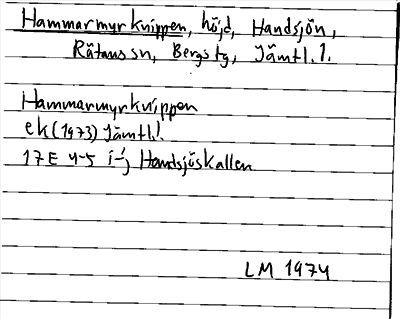 Hammarmyrknippen, höjd, Handsjön,
Rätans sn, Bergs tg, Jämtl. l.
Hammarmyrknippen
ek (1973) Jämtl.
17E 4-5 i-j Handsjöskallen
LM 1974